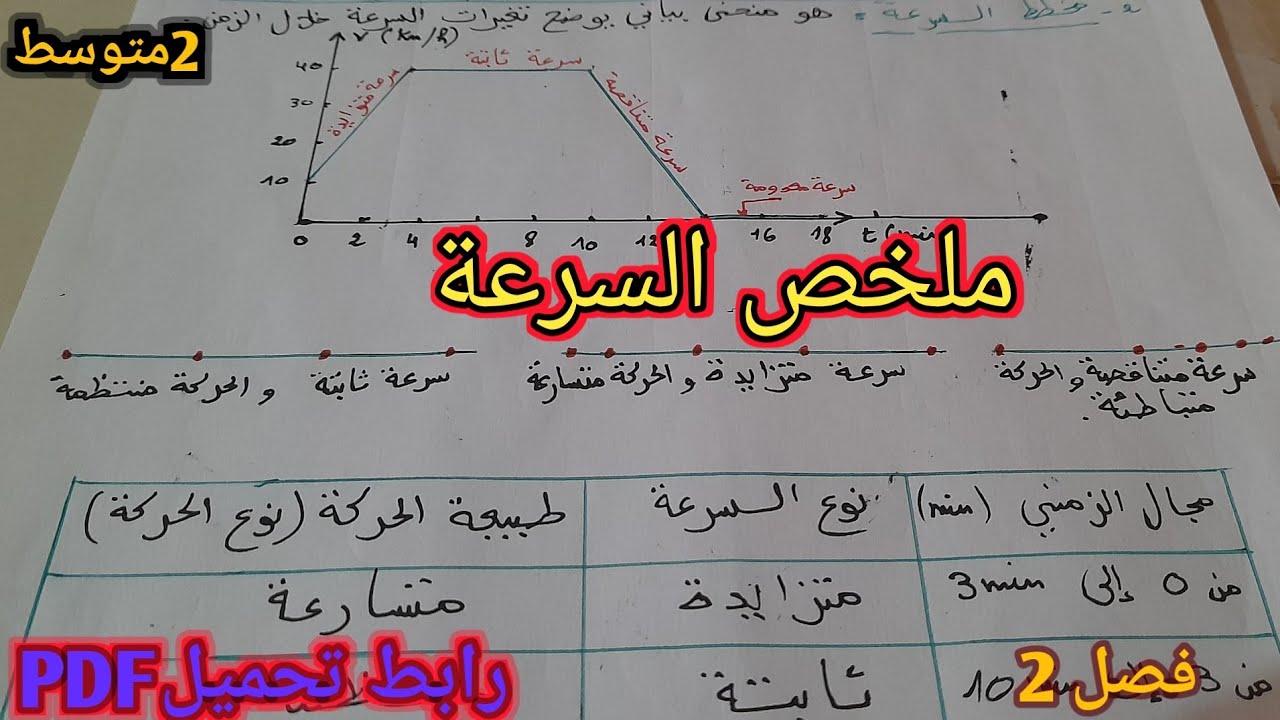 2 - مخطط السرعة = هو منحنى بياني يوضح تغيرات السرعة خلال الزمن
2متوسط
v (km/h)
40
30
20
10
سرعة متزايدة
سرعة ثابتة
سرعة متناقصة
سرعة معدومة
0 2 4 8 10 12 16 18 t (min
ملخص السرعة
سرعة ثابتة و الحركة منتظمة
سرعة متزايدة و الحركة متسارعة
سرعة متناقصة و الحركة
متباطئة.
مجال الزمني (min) نوع السرعة طبيعة الحركة (نوع الحركة)
من 0 إلى 3min متزايدة متسارعة
من 3 10 ثابتة
فصل 2
رابط تحميل PDF